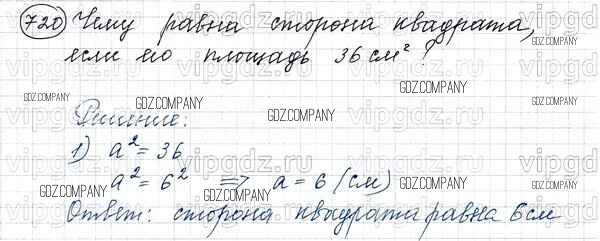 720 Чему равна сторона квадрата,
если его площадь 36 см²?
GDZ.COMPANY GDZ.COMPANY GDZ.COMPANY
Решение:
1) a² = 36
a² = 6² ⇒ a = 6 (см)
Ответ: сторона квадрата равна 6 см